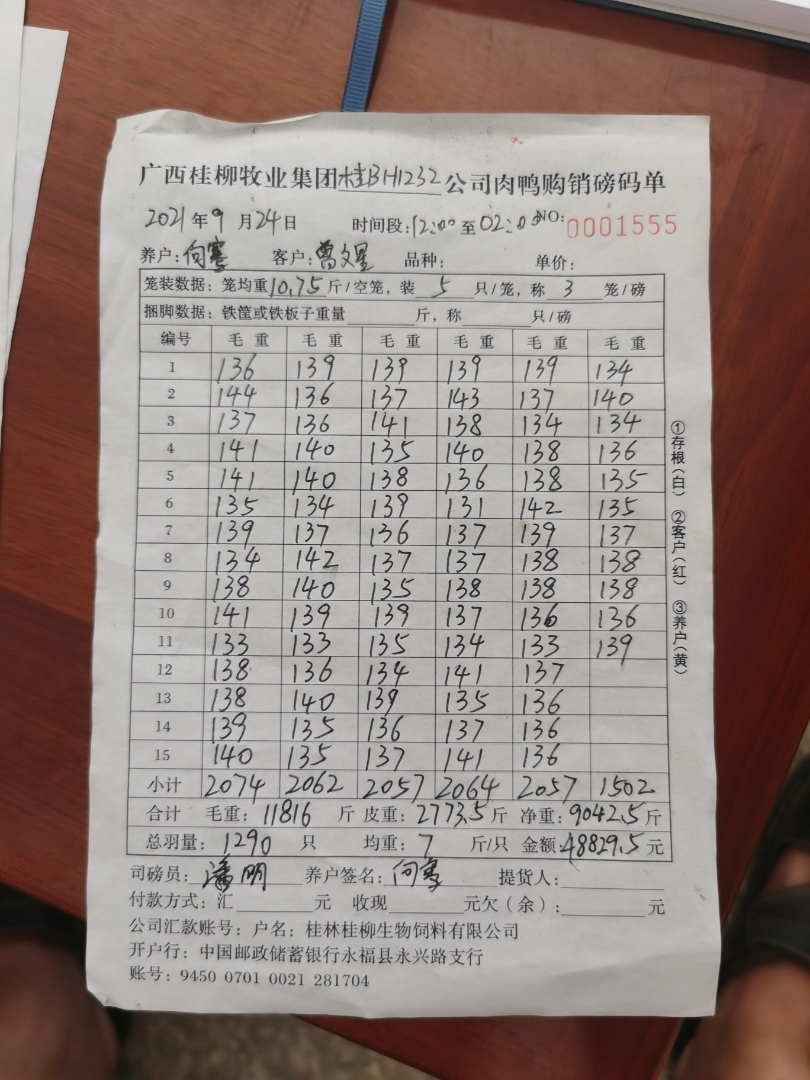 广西桂柳牧业集团桂BH1232公司肉鸭购销磅码单
2021年9月24日 时间段:12:00至02:00 NO:0001555
养户:向骞 客户:曾文星 品种: 单价:
笼装数据:笼均重10.75斤/空笼,装5只/笼,称3笼/磅
捆脚数据:铁筐或铁板子重量 斤,称 只/磅
编号 毛重 毛重 毛重 毛重 毛重 毛重
1 136 139 139 139 139 134
2 144 136 137 143 137 140
3 137 136 141 138 134 134
4 141 140 135 140 138 136
5 141 140 138 136 138 135
6 135 134 139 131 142 135
7 139 137 136 137 139 137
8 134 142 137 137 138 138
9 138 140 135 138 138 138
10 141 139 139 137 136 136
11 133 133 135 134 133 139
12 138 136 134 141 137
13 138 140 139 135 136
14 139 135 136 137 136
15 140 135 137 141 136
小计 2074 2062 2057 2064 2057 1502
合计 毛重:11816斤 皮重:2773.5斤 净重:9042.5斤
总羽量:1290只 均重:7斤/只 金额:48829.5元
司磅员:潘明 养户签名:向骞 提货人:
付款方式:汇 元 收现 元欠(余): 元
公司汇款账号:户名:桂林桂柳生物饲料有限公司
开户行:中国邮政储蓄银行永福县永兴路支行
账号:9450 0701 0021 281704
①存根(白) ②客户(红) ③养户(黄)